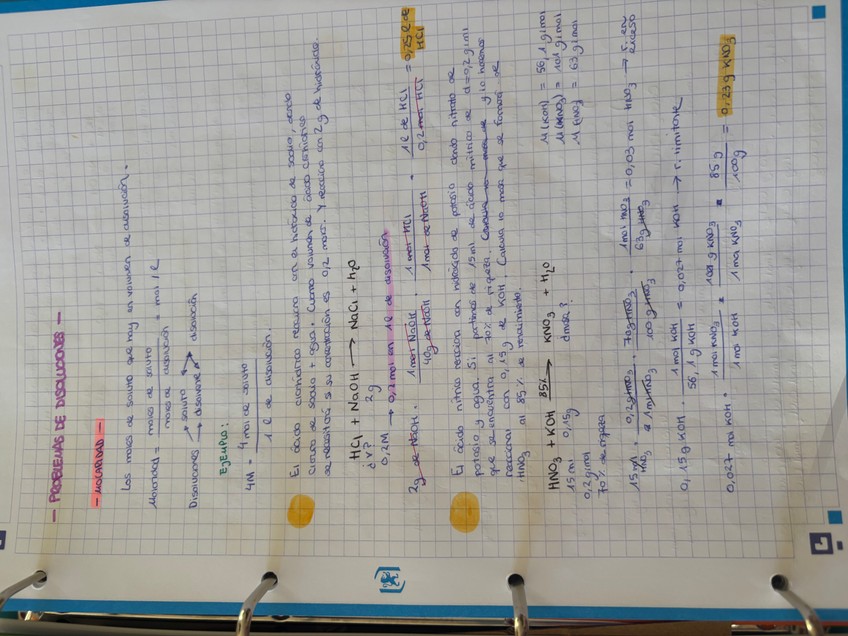 — PROBLEMAS DE DISOLUCIONES —
- MOLARIDAD -
Los moles de soluto que hay en volumen de disolución.
Molaridad = moles de soluto / moles de disolución = mol / l
Disoluciones → soluto → disolvente → disolución
EJEMPLO:
4M = 4 mol de soluto / 1 l de disolución.
El ácido clorhídrico reacciona con el hidróxido de sodio, dando
cloruro de sodio + agua. Cuánto volumen de ácido clorhídrico
se necesitará si su concentración es 0,2 molar. Y reacciona con 2g de hidróxido.
HCl + NaOH → NaCl + H2O
¿V? 2g
0,2M → 0,2 mol en 1 l de disolución
2g de NaOH · 1 mol NaOH / 40g de NaOH · 1 mol HCl / 1 mol de NaOH · 1 l de HCl / 0,2 mol HCl = 0,25 l de HCl
El ácido nítrico reacciona con hidróxido de potasio dando nitrato de
potasio y agua. Si partimos de 15 ml de ácido nítrico de d=0,2 g/ml
que se encuentra al 70% de riqueza. y lo hacemos
reaccionar con 0,15g de KOH. Calcula la masa que se formará de
HNO3 al 85% de rendimiento.
HNO3 + KOH 85% → KNO3 + H2O
15 ml 0,15g ¿masa?
0,2 g/ml
70% de riqueza
M(KOH) = 56,1 g/mol
M(KNO3) = 101 g/mol
M(HNO3) = 63 g/mol
15 ml HNO3 · 0,2g HNO3 / 1 ml HNO3 · 70g HNO3 / 100g HNO3 · 1 mol HNO3 / 63g HNO3 = 0,03 mol HNO3 → r. en exceso
0,15g KOH · 1 mol KOH / 56,1 g KOH = 0,027 mol KOH → r. limitante
0,027 mol KOH · 1 mol KNO3 / 1 mol KOH · g KNO3 / 1 mol KNO3 · 85g / 100g = 0,23g KNO3